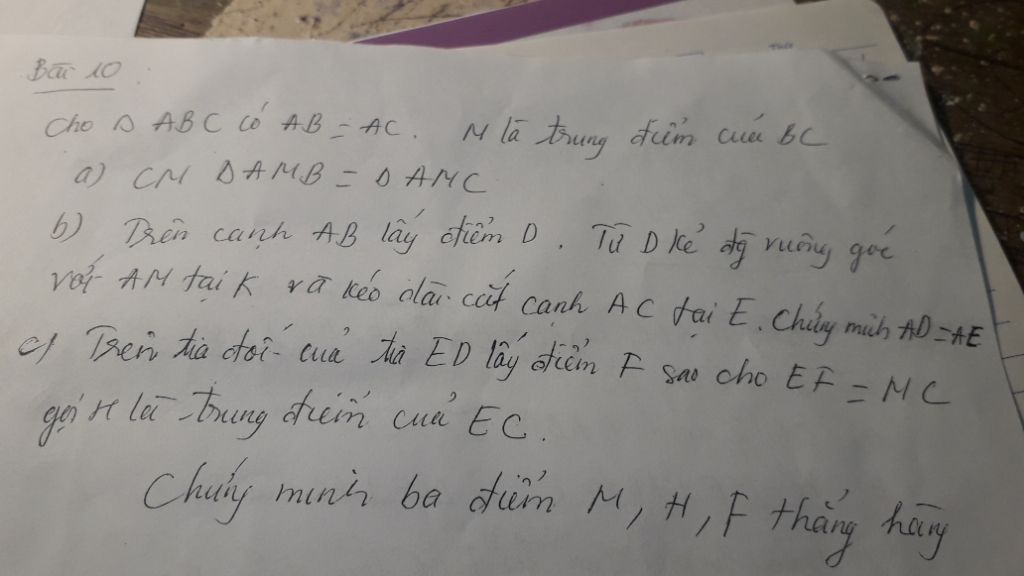 Bài 10
Cho Δ ABC có AB = AC. M là trung điểm của BC
a) CM Δ AMB = Δ AMC
b) Trên cạnh AB lấy điểm D. Từ D kẻ đg vuông góc
với AM tại K và kéo dài cắt cạnh AC tại E. Chứng minh AD = AE
c) Trên tia đối của tia ED lấy điểm F sao cho EF = MC
gọi H là trung điểm của EC.
Chứng minh ba điểm M, H, F thẳng hàng